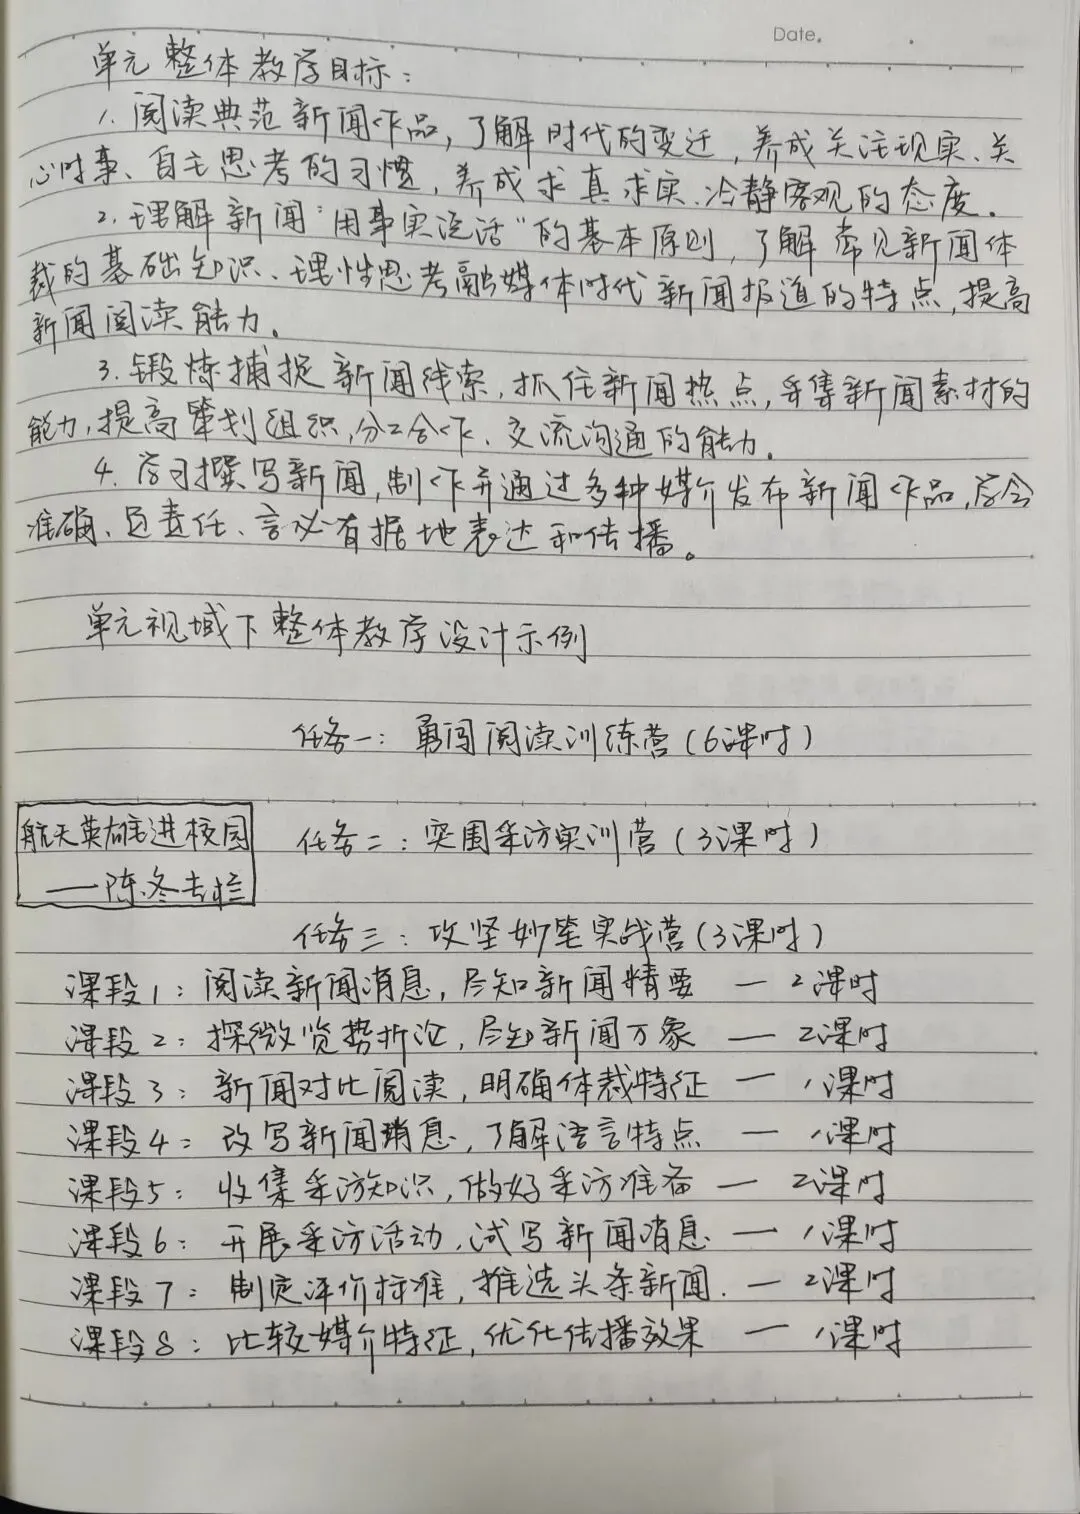 Date.
单元整体教学目标：
1. 阅读典范新闻作品，了解时代的变迁，养成关注现实、关
心时事、自主思考的习惯，养成求真求实、冷静客观的态度。
2. 理解新闻“用事实说话”的基本原则，了解常见新闻体
裁的基础知识、理性思考融媒体时代新闻报道的特点，提高
新闻阅读能力。
3. 锻炼捕捉新闻线索，抓住新闻热点，采集新闻素材的
能力，提高策划组织，分工合作、交流沟通的能力。
4. 学习撰写新闻，制作并通过多种媒介发布新闻作品，学会
准确、负责任、言必有据地表达和传播。
单元视域下整体教学设计示例
任务一：勇闯阅读训练营（6课时）
航天英雄进校园
——陈冬专栏
任务二：突围采访实训营（3课时）
任务三：攻坚妙笔实战营（3课时）
课段1：阅读新闻消息，尽知新闻精要 — 2课时
课段2：探微览势析论，尽知新闻万象 — 2课时
课段3：新闻对比阅读，明确体裁特征 — 1课时
课段4：改写新闻消息，了解语言特点 — 1课时
课段5：收集采访知识，做好采访准备 — 2课时
课段6：开展采访活动，试写新闻消息 — 1课时
课段7：制定评价标准，推选头条新闻. — 2课时
课段8：比较媒介特征，优化传播效果 — 1课时